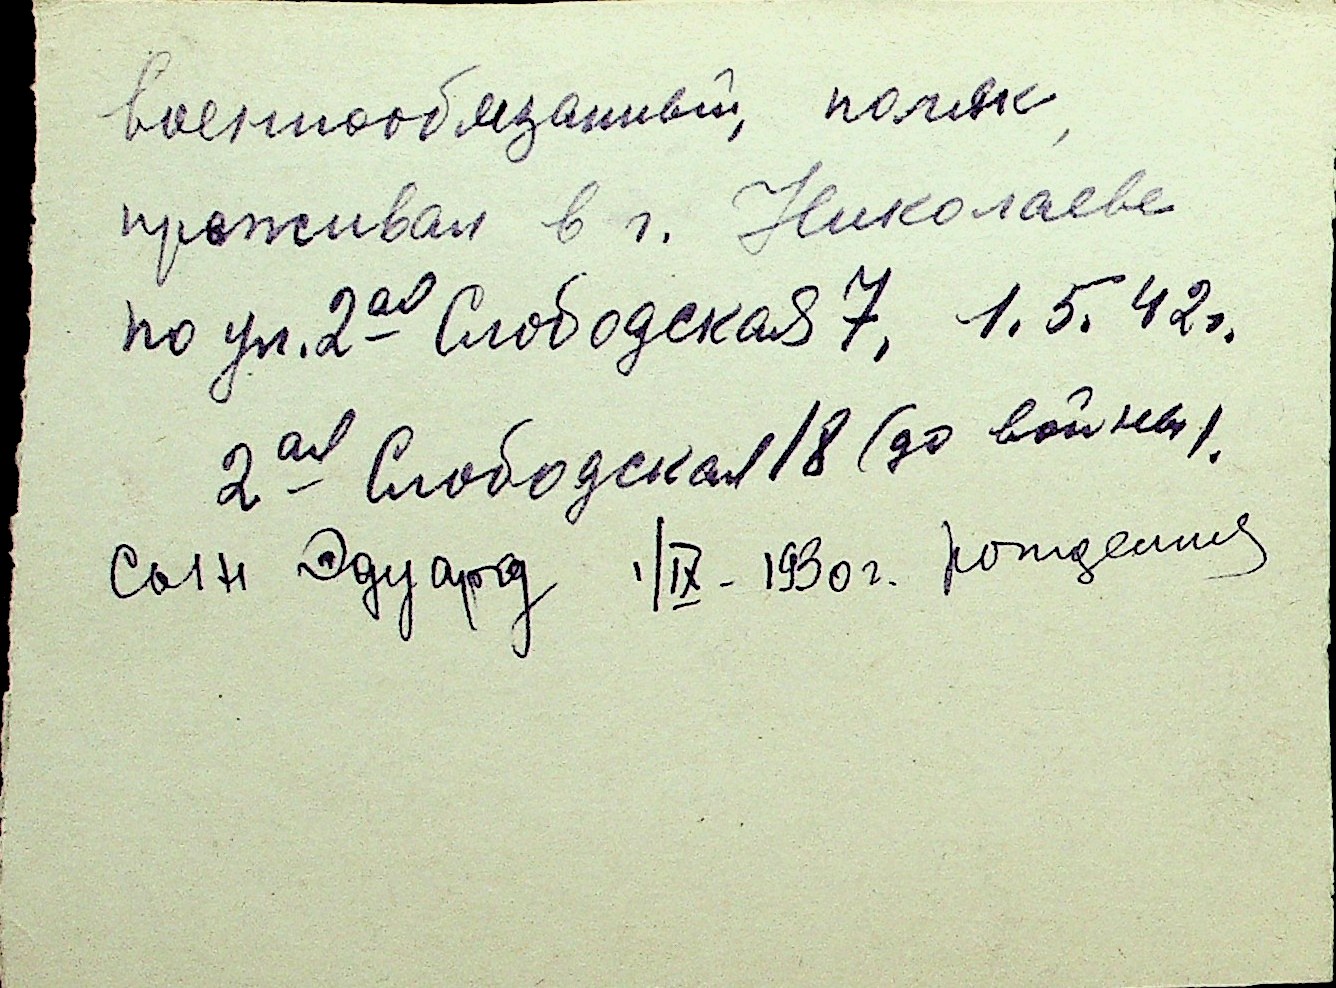 военнообязанный, поляк,
проживал в г. Николаеве
по ул. 2ая Слободская 7, 1.5.42г.
2ая Слободская 18 (до войны).
сын Эдуард 1/IX - 1930г. рождения